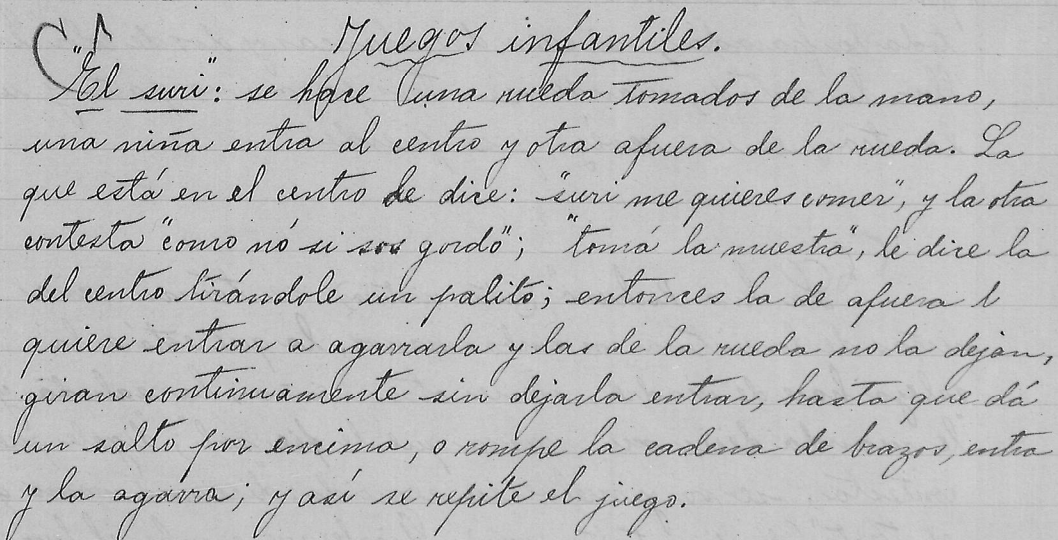 Juegos infantiles.
"El suri": se hace una rueda tomados de la mano,
una niña entra al centro y otra afuera de la rueda. La
que está en el centro le dice: "suri me quieres comer", y la otra
contesta "como nó si sos gordo"; "tomá la muestra", le dice la
del centro tirándole un palito; entonces la de afuera l
quiere entrar a agarrarla y las de la rueda no la dejan,
giran continuamente sin dejarla entrar, hasta que dá
un salto por encima, o rompe la cadena de brazos, entra
y la agarra; y así se repite el juego.